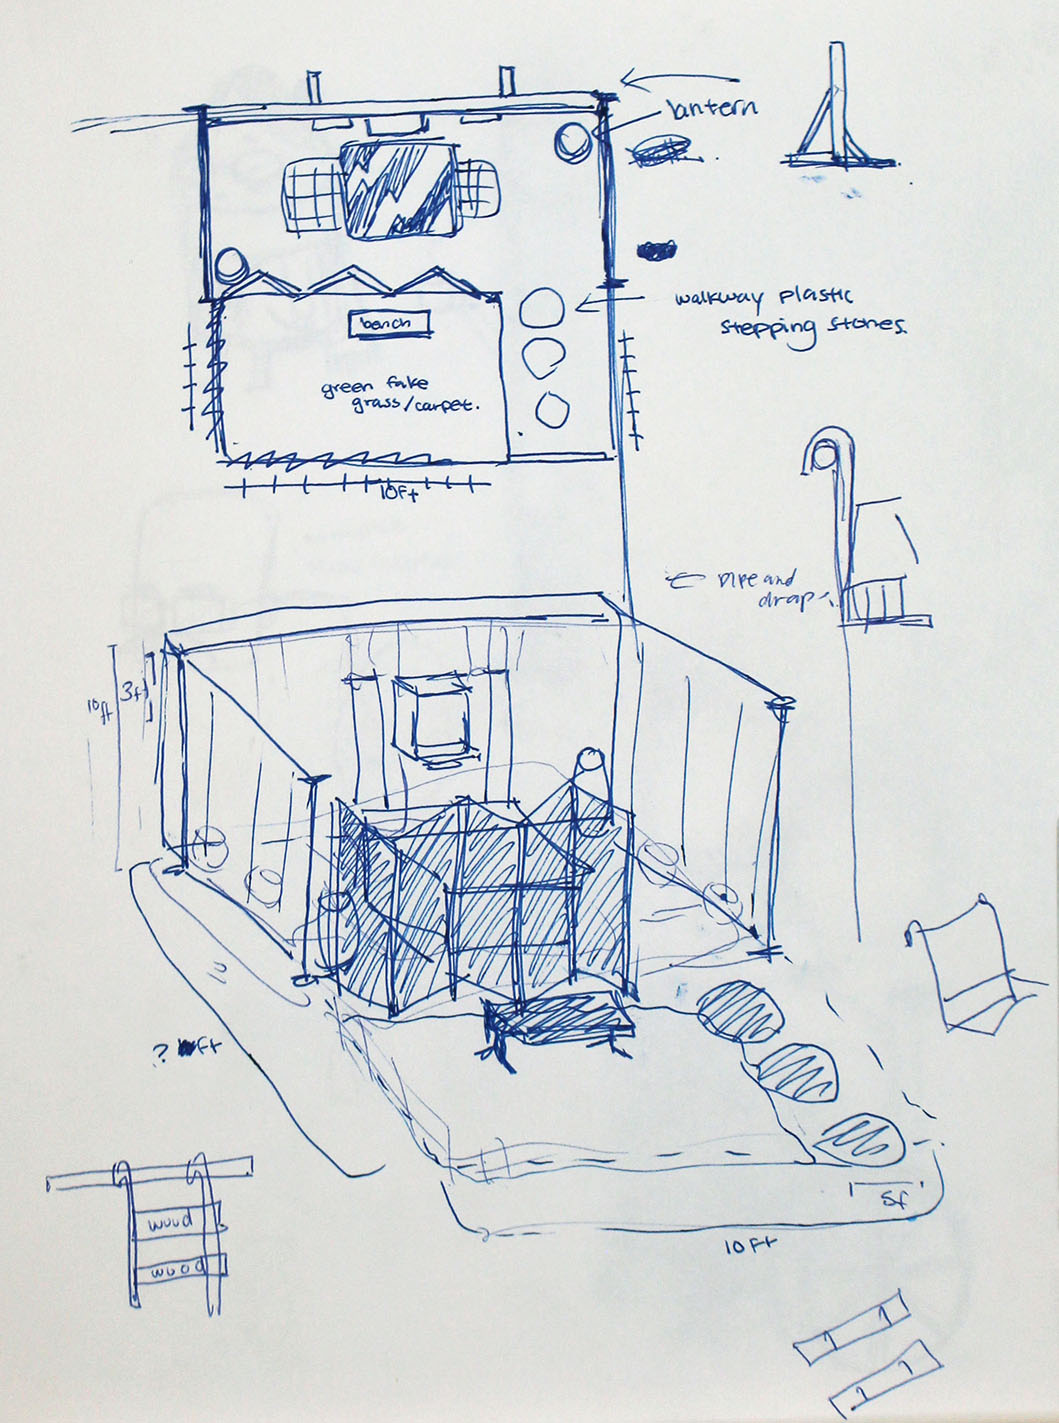 lantern
walkway plastic
stepping stones.
bench
green fake
grass/carpet.
10Ft
pipe and
drap
10ft
3ft
10
? ft
wood
wood
5f
10Ft